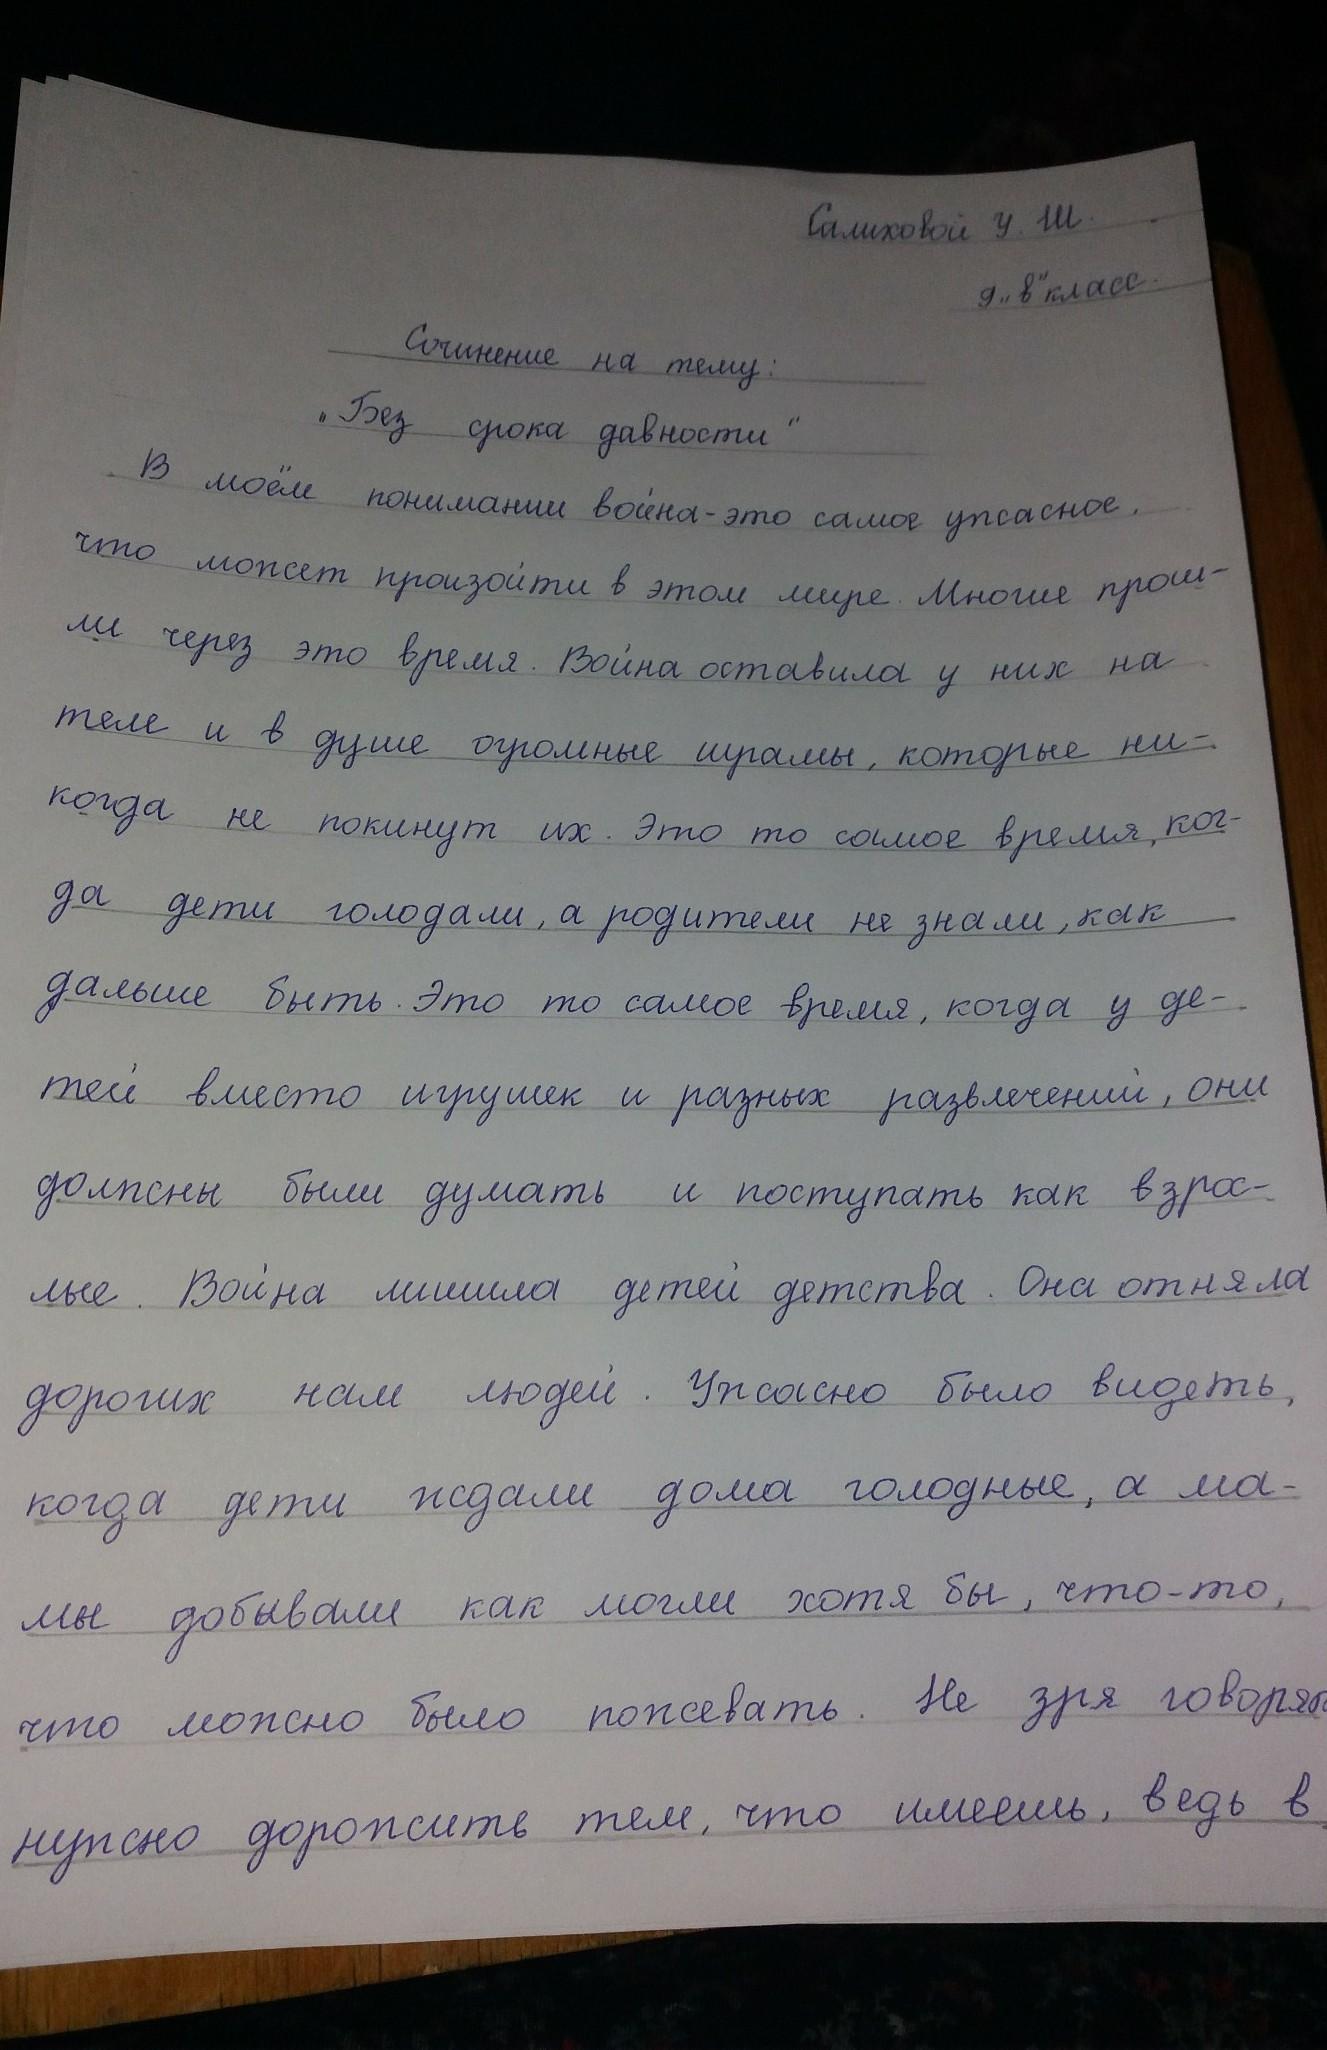 Салиховой У. Ш.
9 „в" класс.
Сочинение на тему:
„Без срока давности"
В моём понимании война - это самое ужасное,
что может произойти в этом мире. Многие прош-
ли через это время. Война оставила у них на
теле и в душе огромные шрамы, которые ни-
когда не покинут их. Это то самое время, ког-
да дети голодали, а родители не знали, как
дальше быть. Это то самое время, когда у де-
тей вместо игрушек и разных развлечений, они
должны были думать и поступать как взрос-
лые. Война лишила детей детства. Она отняла
дорогих нам людей. Ужасно было видеть,
когда дети ждали дома голодные, а ма-
мы добывали как могли хотя бы, что-то,
что можно было пожевать. Не зря говорят
нужно дорожить тем, что имеешь, ведь в